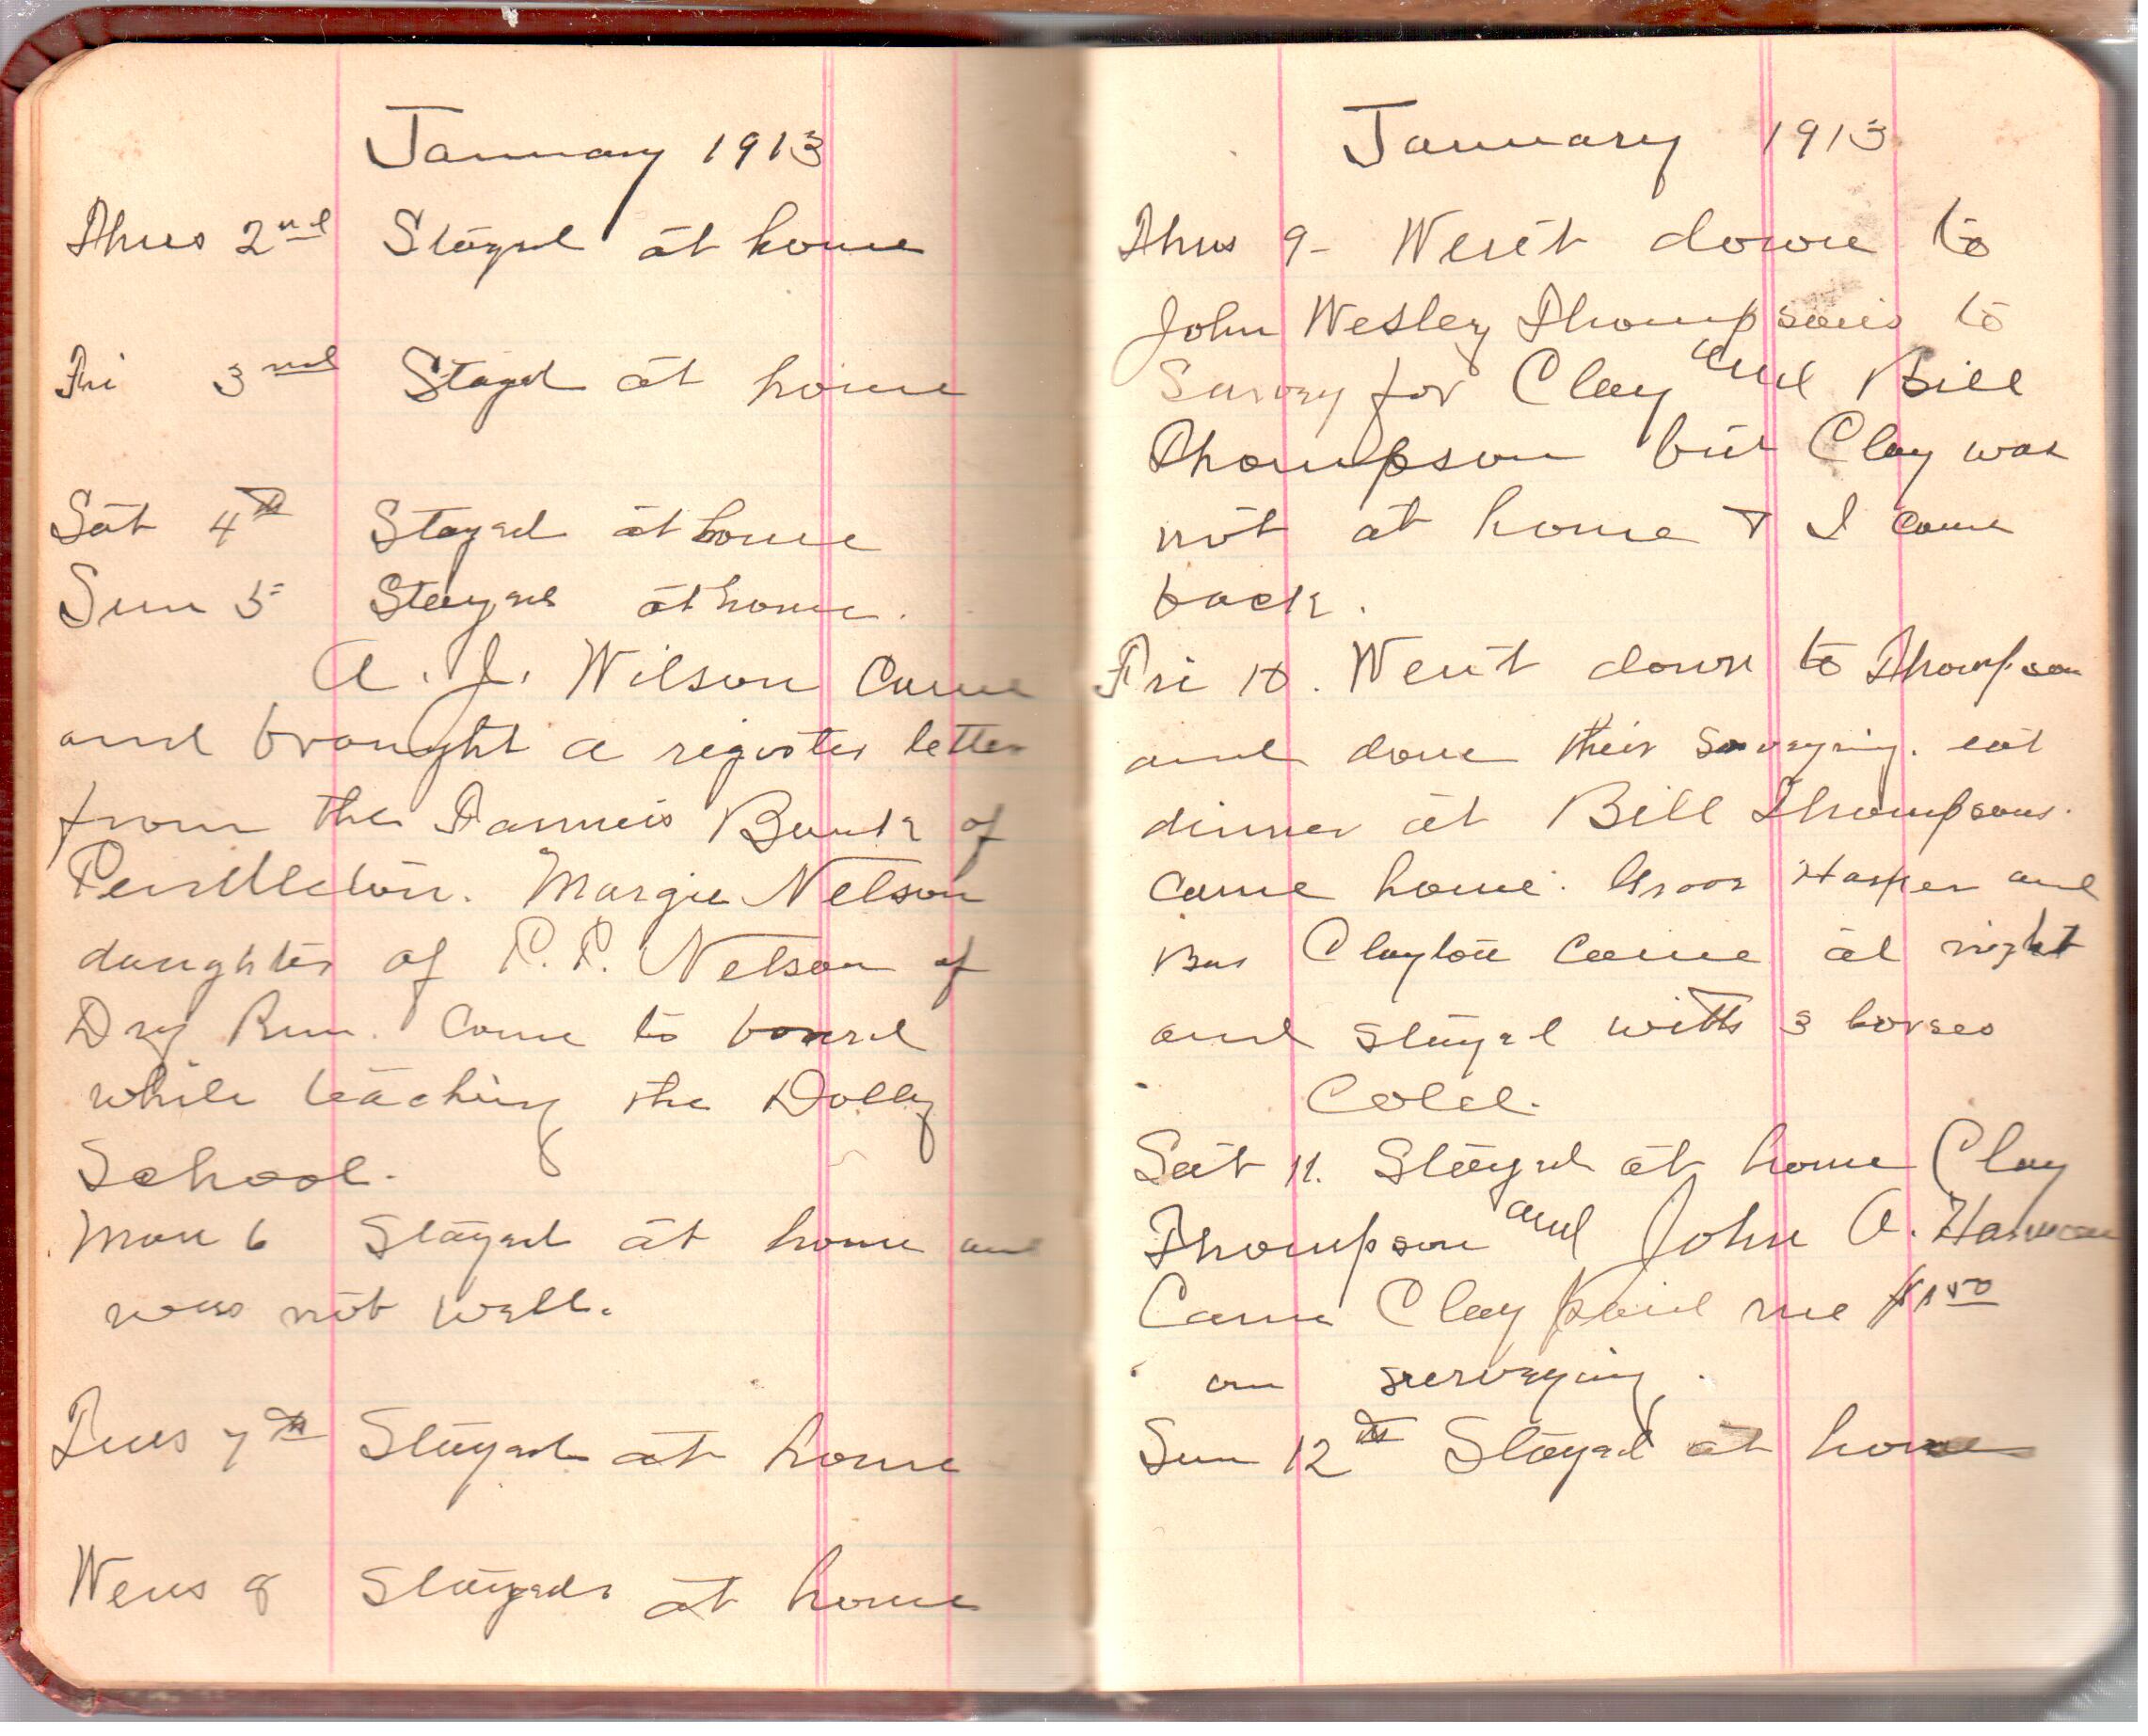 January 1913
Thus 2nd Stayed at home
Fri 3rd Stayd at home
Sat 4th Stayed at home
Sun 5 Stayed at home.
A. J. Wilson Came
and brought a register letter
from the Farmers Bank of
Pendleton. Margie Nelson
daughter of P. P. Nelson of
Dry Run. Come to board
while teaching the Dolly
School.
Mon 6 Stayed at home and
was not well.
Tues 7th Stayed at home
Wens 8 Stayed at home
January 1913
Thus 9 - Went down to
John Wesley Thompsons to
Survey for Clay and Bill
Thompson but Clay was
not at home & I came
back.
Fri 10. Went down to Thompson
and done their Surveying. eat
dinner at Bill Thompsons.
Came home. Harper and
Clayton came at night
and stayed with 3 horses
Cold.
Sat 11. Stayed at home Clay
Thompson and John A. Harman
Came Clay paid me $1 50
on surveying.
Sun 12th Stayed at home